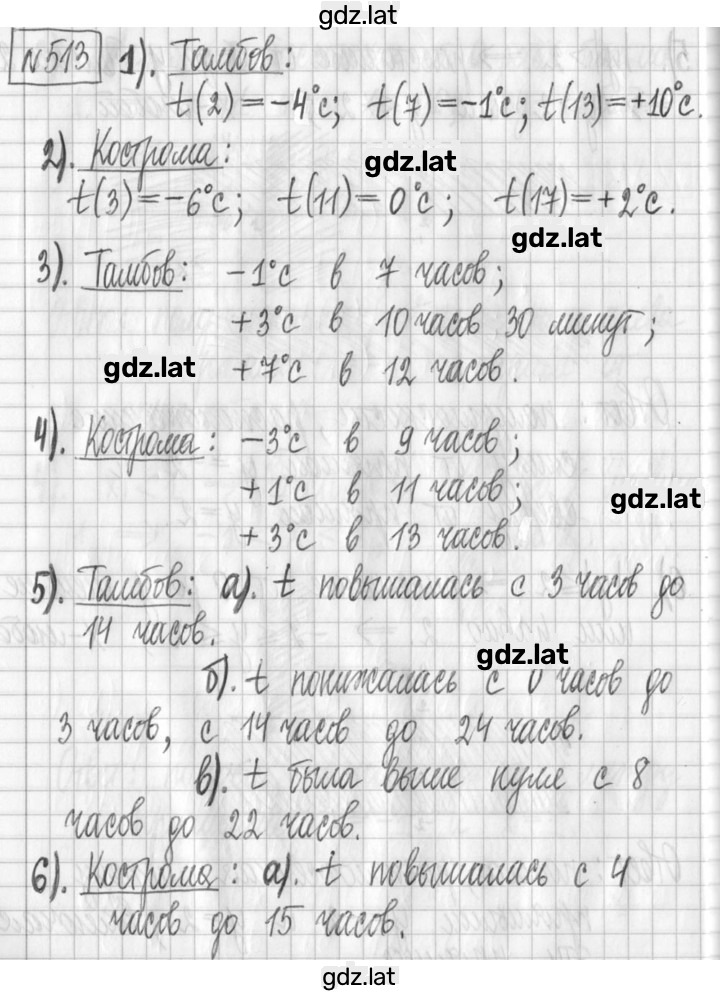 gdz.lat
№513 1). Тамбов:
t(2)=-4°C; t(7)=-1°C; t(13)=+10°C.
2). Кострома:
gdz.lat
t(3)=-6°C; t(11)=0°C; t(17)=+2°C.
gdz.lat
3). Тамбов: -1°C в 7 часов;
+3°C в 10 часов 30 минут;
gdz.lat
+7°C в 12 часов.
4). Кострома: -3°C в 9 часов;
+1°C в 11 часов;
gdz.lat
+3°C в 13 часов.
5). Тамбов: а). t повышалась с 3 часов до
14 часов.
gdz.lat
б). t понижалась с 0 часов до
3 часов, с 14 часов до 24 часов.
в). t была выше нуля с 8
часов до 22 часов.
6). Кострома: а). t повышалась с 4
часов до 15 часов.
gdz.lat